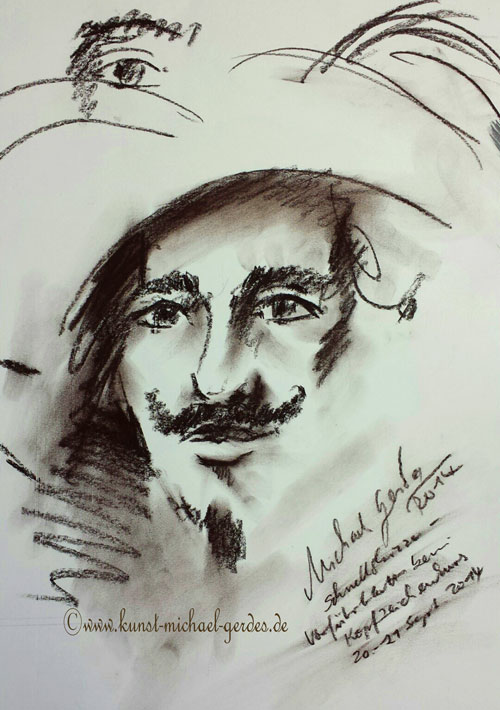 Michael Gerdes
2014
Schnellskizze -
Vorführblatt beim
Kopfzeichenkurs
20.-21 Sept. 2014
©www.kunst-michael-gerdes.de